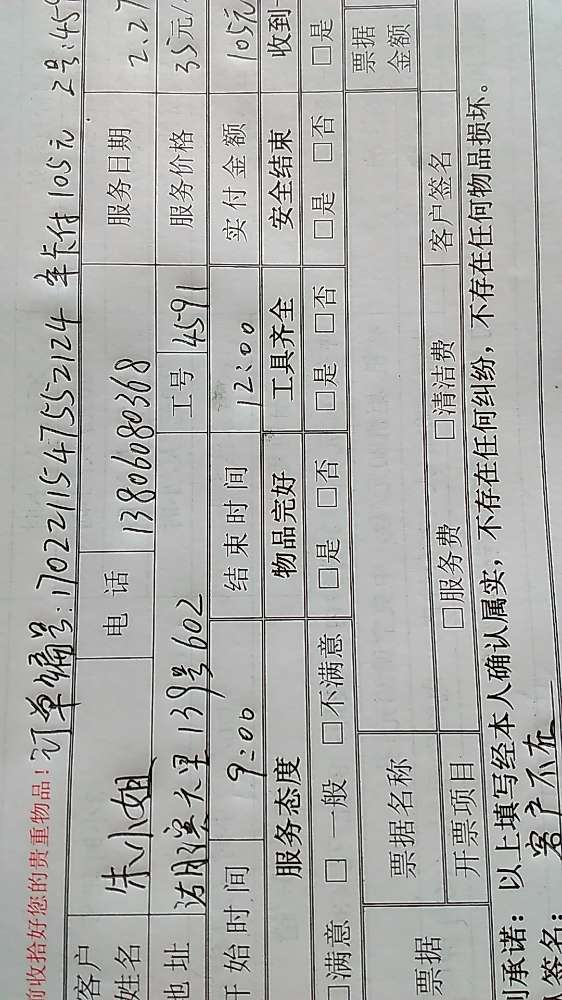 前收拾好您的贵重物品！订单编号：1702211547552124 年卡付105元 2号:459
客户姓名 朱小姐 电话 13806080368 服务日期 2.27
地址 139号602 工号 4591 服务价格 35元/
开始时间 9:00 结束时间 12:00 实付金额 105元
服务态度 物品完好 工具齐全 安全结束 收到
□满意 □一般 □不满意 □是 □否 □是 □否 □是 □否 □是
票据 票据名称 票据金额
开票项目 □服务费 □清洁费 客户签名
承诺：以上填写经本人确认属实，不存在任何纠纷，不存在任何物品损坏。
签名：客户不在